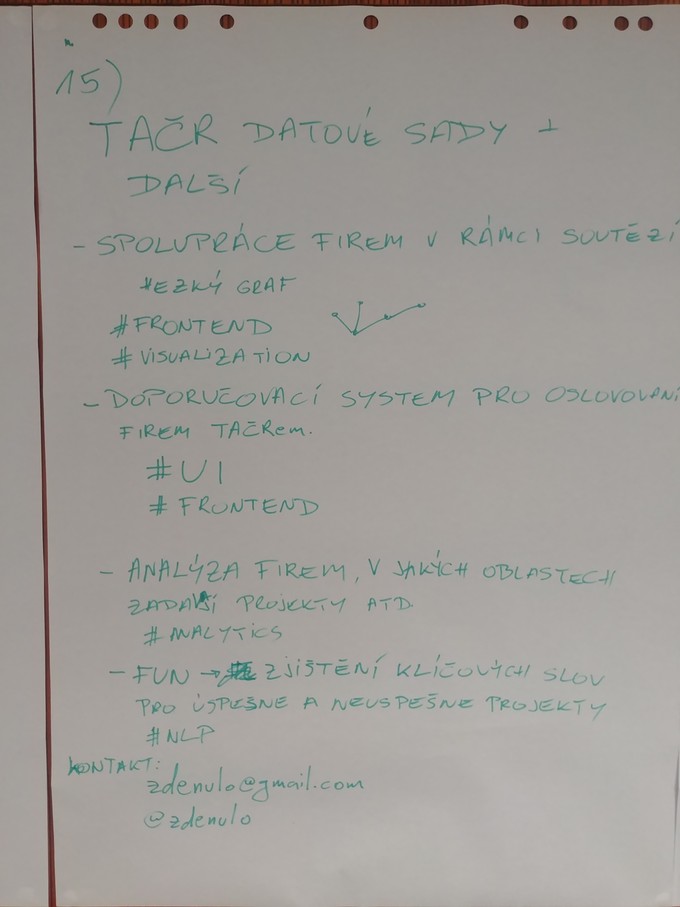 15)
TAČR DATOVÉ SADY +
DALŠÍ
- SPOLUPRÁCE FIREM V RÁMCI SOUTĚŽÍ
HEZKÝ GRAF
#FRONTEND
#VISUALIZATION
- DOPORUČOVACÍ SYSTEM PRO OSLOVOVANÍ
FIREM TAČRem.
#UI
# FRONTEND
- ANALÝZA FIREM, V JAKÝCH OBLASTECH
ZADAVŠÍ PROJEKTY ATD.
#ANALYTICS
- FUN → ZJIŠTĚNÍ KLÍČOVÝCH SLOV
PRO ÚSPEŠNE A NEUSPEŠNE PROJEKTY
#NLP
KONTAKT:
zdenulo@gmail.com
@zdenulo